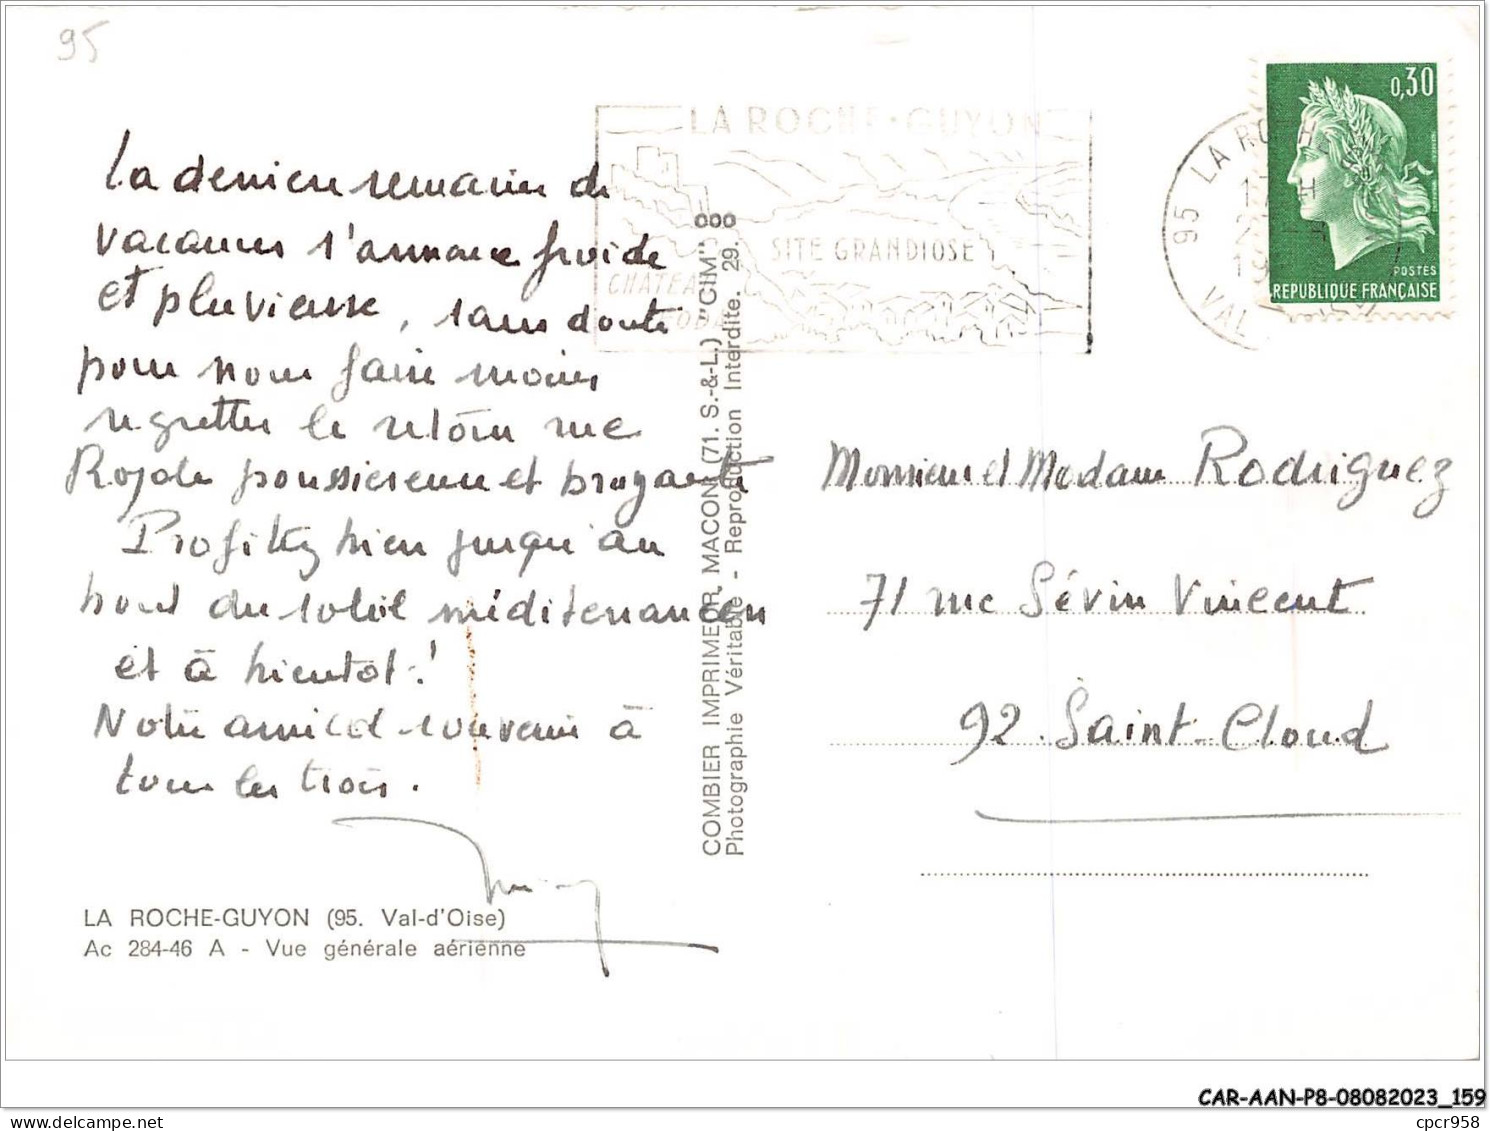 95
La dernière semaine de
vacances s'annonce froide
et pluvieuse, sans doute
pour nous faire moins
regretter le retour rue
Royale poussiéreuse et bruyante
Profitez bien jusqu'au
bout du soleil méditerranéen
et à bientôt !
Notre amical souvenir à
tous les trois.
LA ROCHE-GUYON (95. Val-d'Oise)
Ac 284-46 A - Vue générale aérienne
COMBIER IMPRIMEUR MACON (71. S.-&-L.) "CIM"
Photographie Véritable - Reproduction Interdite. 29.
LA ROCHE-GUYON
SITE GRANDIOSE
95 LA ROCHE
VAL
0,30
POSTES
REPUBLIQUE FRANÇAISE
Monsieur et Madame Rodriguez
71 rue Sévin Vincent
92. Saint-Cloud
CAR-AAN-P8-08082023_159
cpcr958